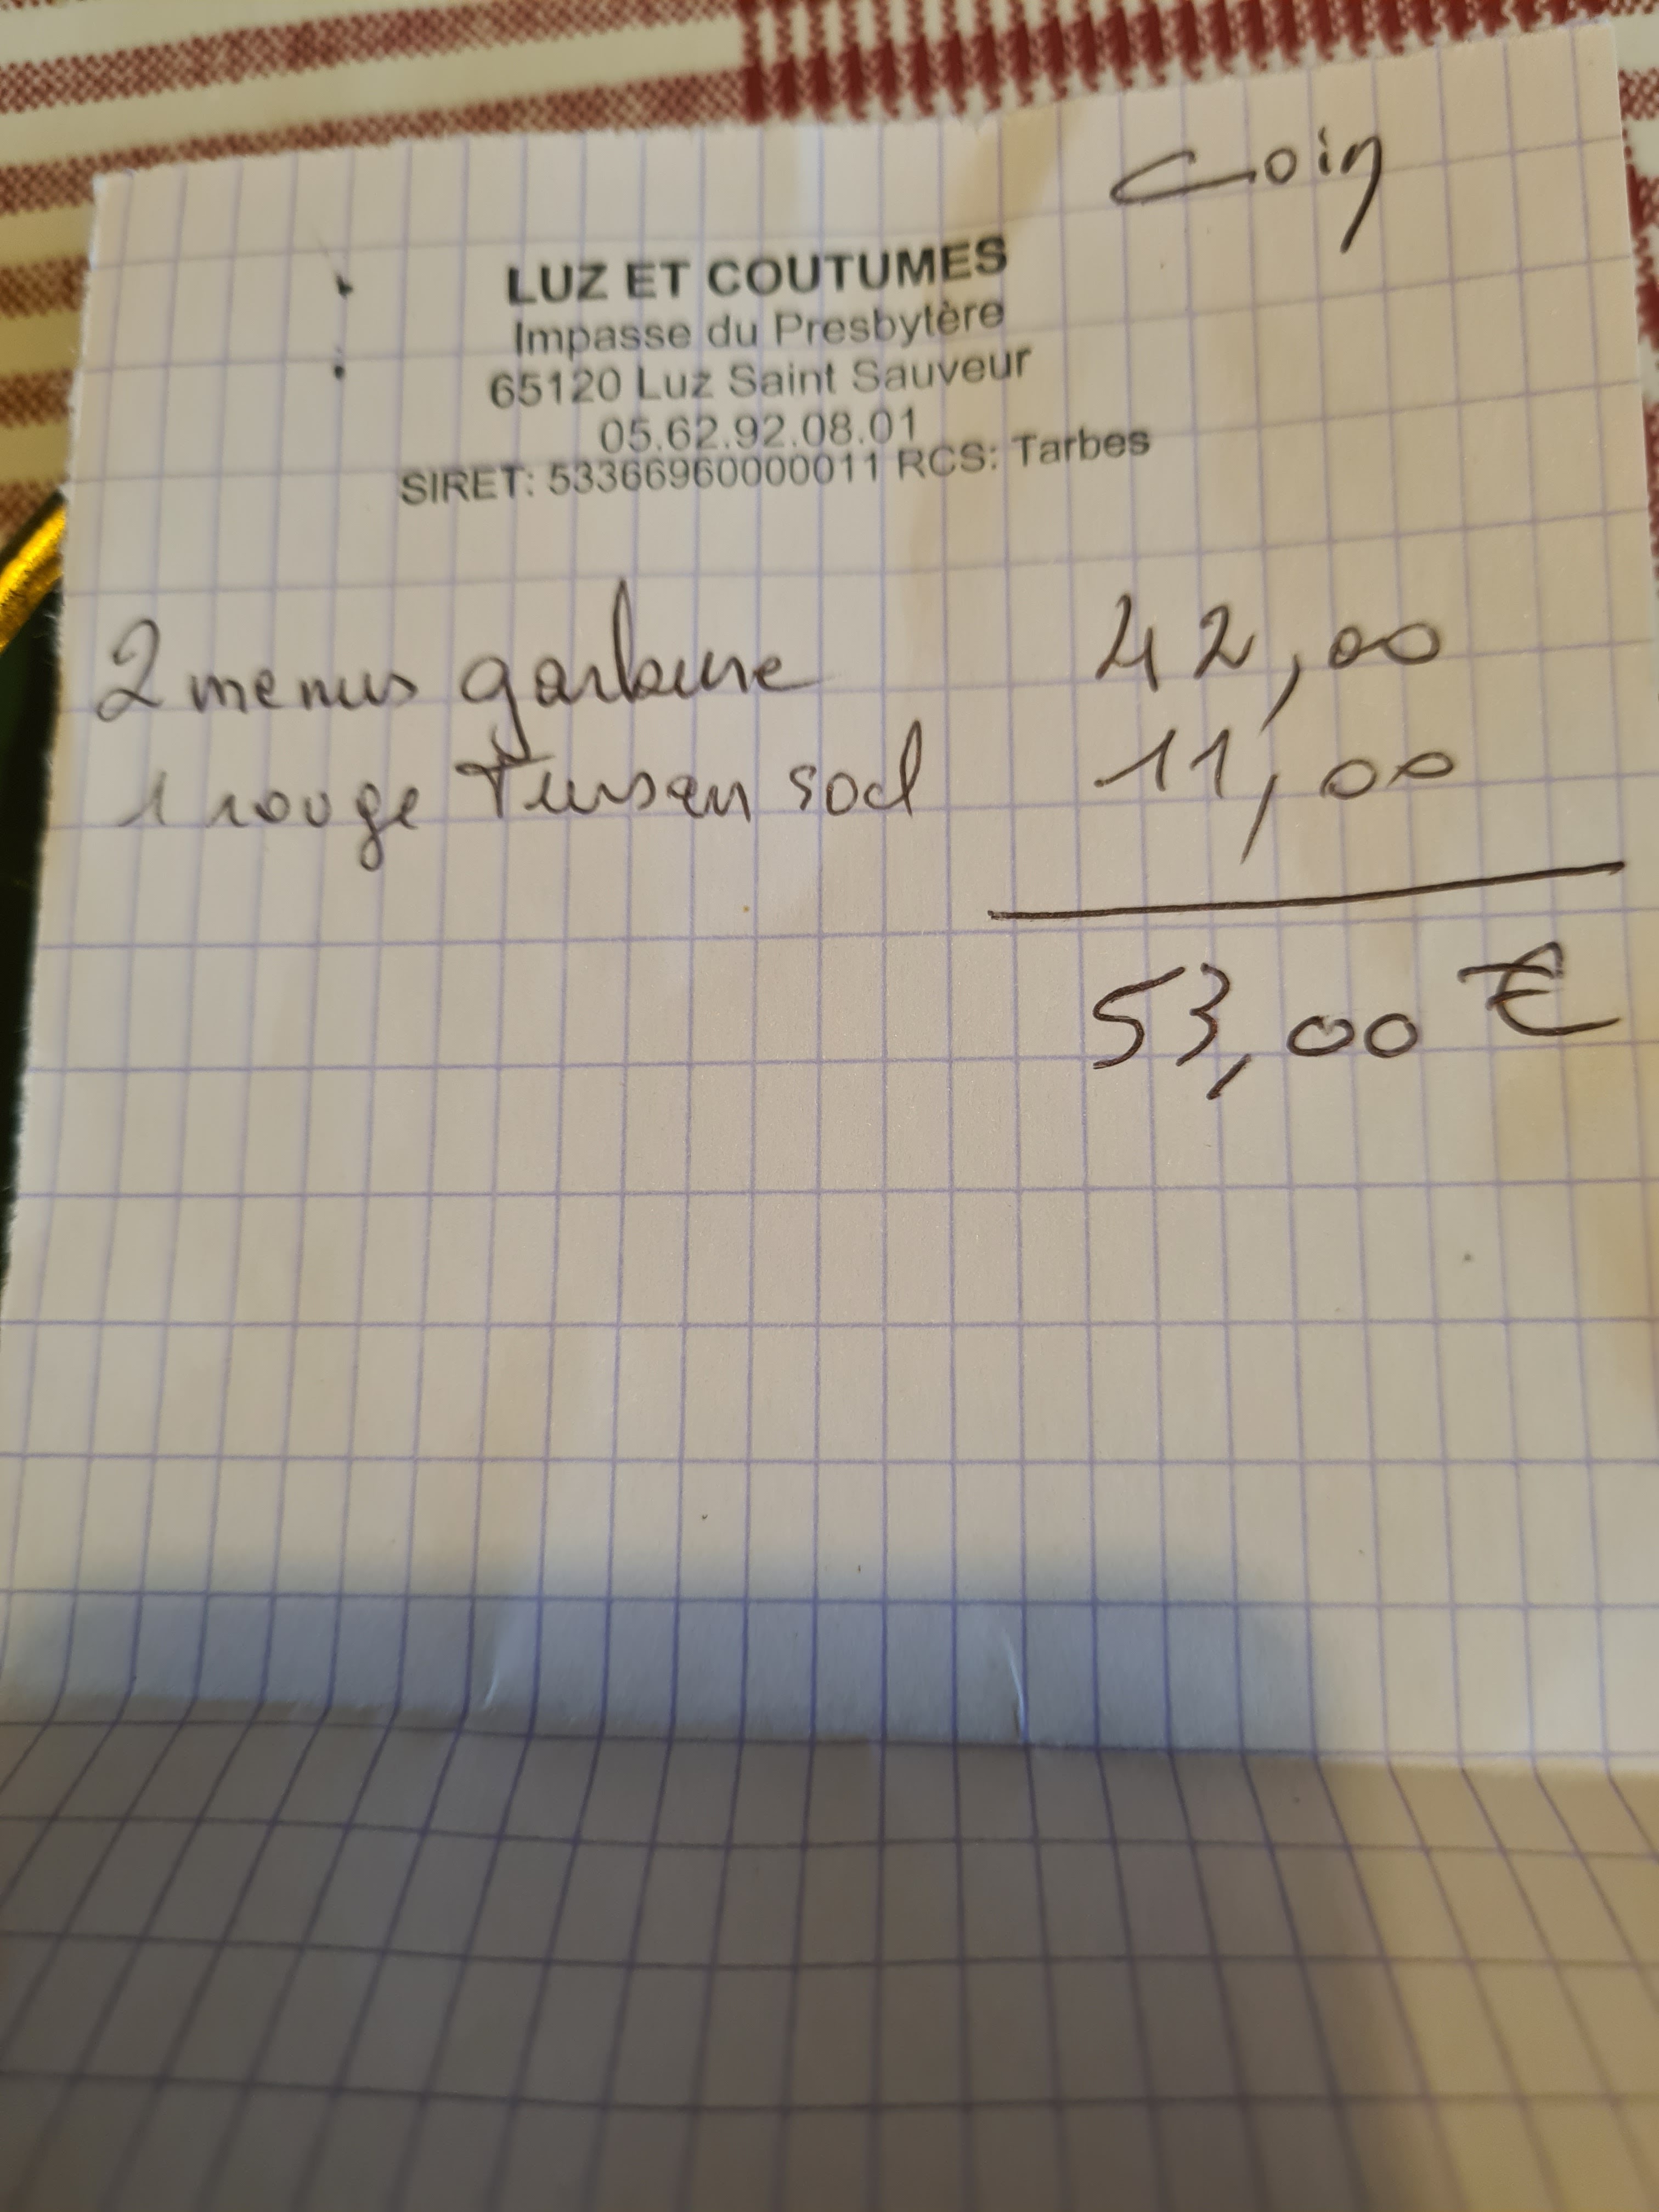 Coin
LUZ ET COUTUMES
Impasse du Presbytère
65120 Luz Saint Sauveur
05.62.92.08.01
SIRET: 53366960000011 RCS: Tarbes
2 menus garbure 42,00
1 rouge Tursan 50cl 11,00
53,00 €